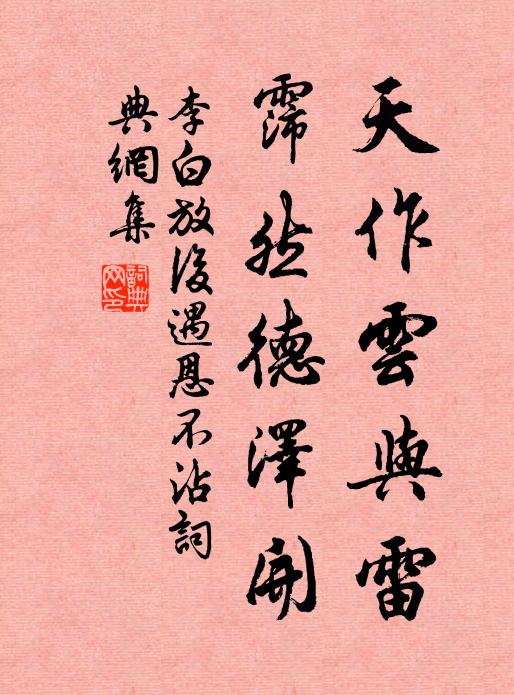 天作雲與雷
霈然德澤開
李白放後遇恩不沾詞
典網集
詞典網印